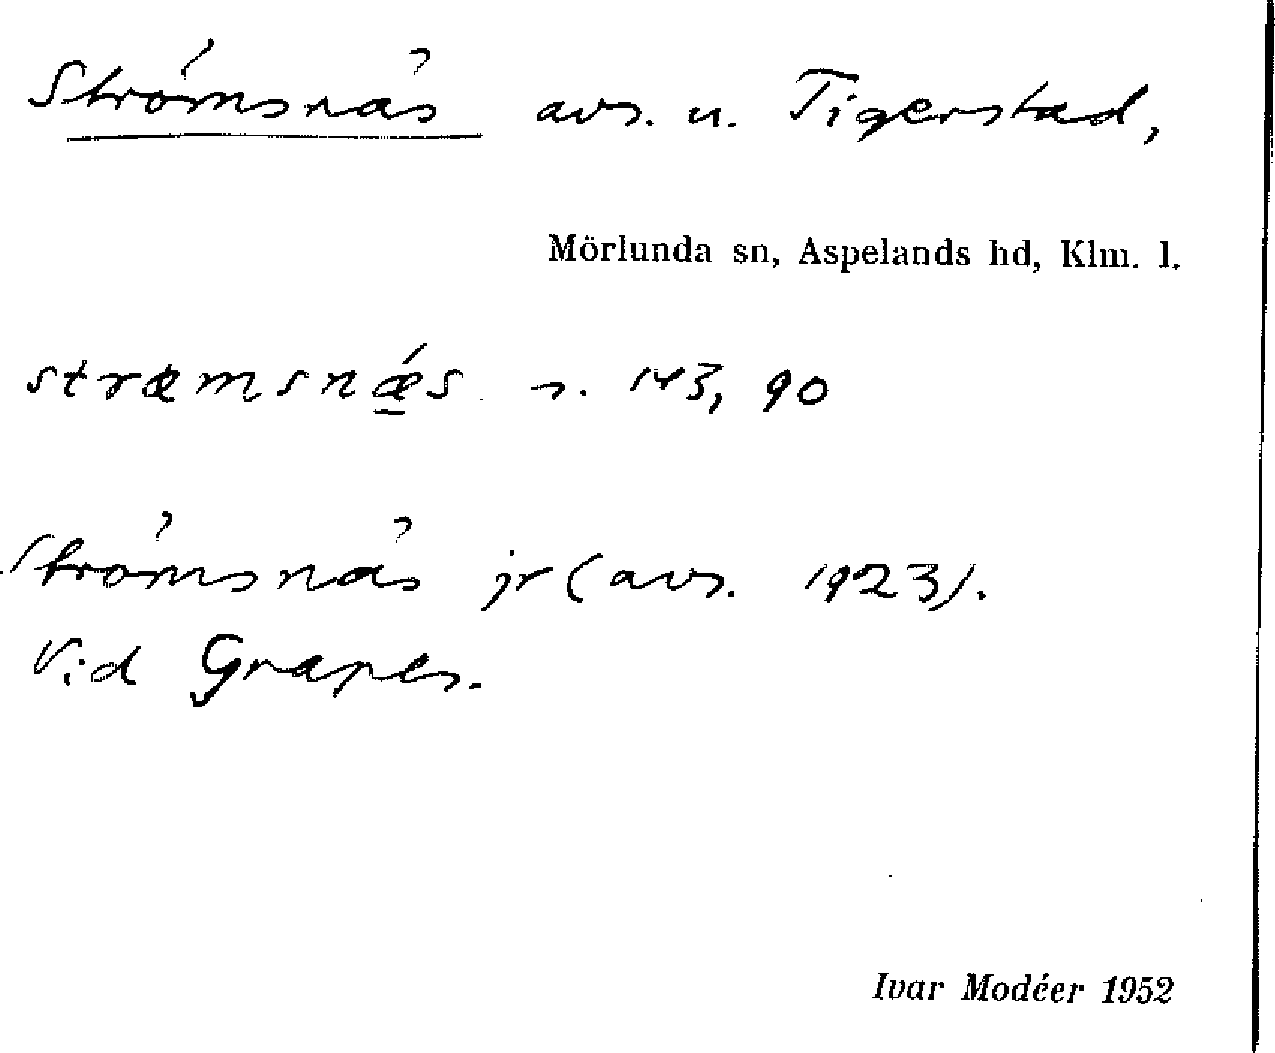 Strömsnäs avs. u. Tigerstad,
Mörlunda sn, Aspelands hd, Klm. l.
stræmsnǽs s. 143, 90
Strömsnäs jr (avs. 1923).
Vid Grapes.
Ivar Modéer 1952